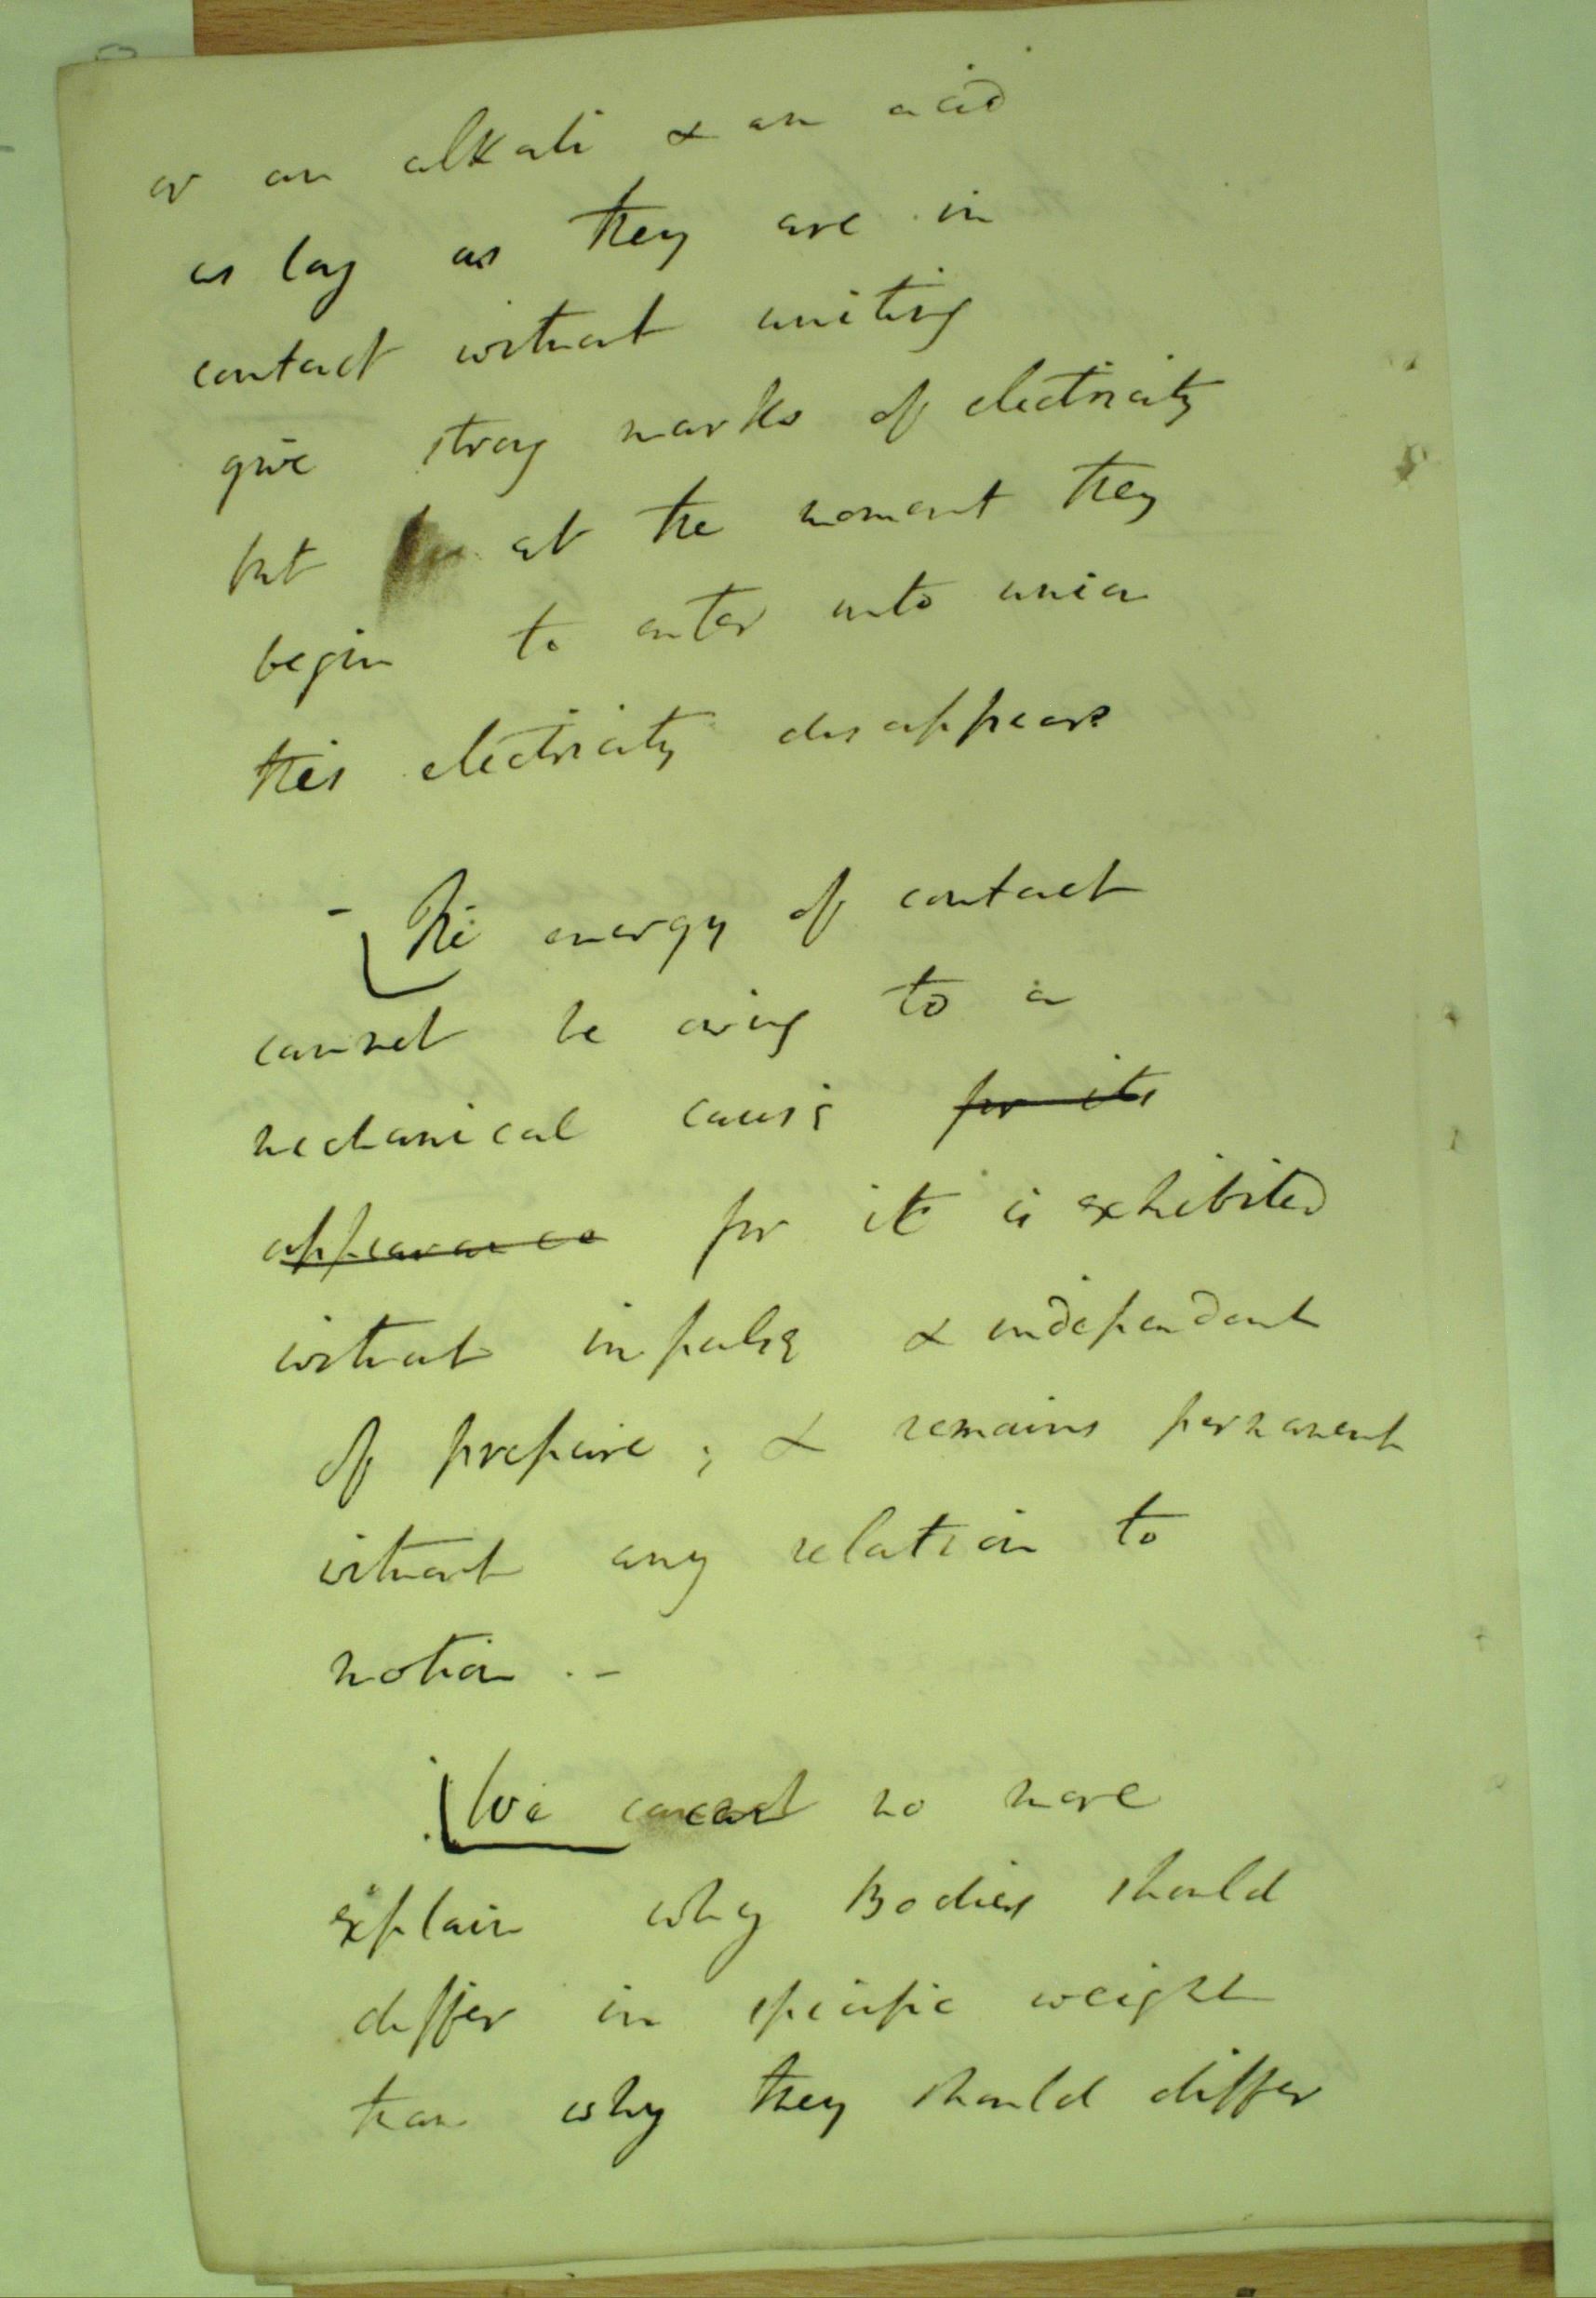 or an alkali & an acid
as long as they are in
contact without uniting
give strong marks of electricity
but at the moment they
begin to enter into union
this electricity disappears
- The energy of contact
cannot be owing to a
mechanical cause for its
appearance for it is exhibited
without impulse & independent
of pressure ; & remains permanent
without any relation to
motion . -
We cannot no more
explain why Bodies should
differ in specific weight
than why they should differ